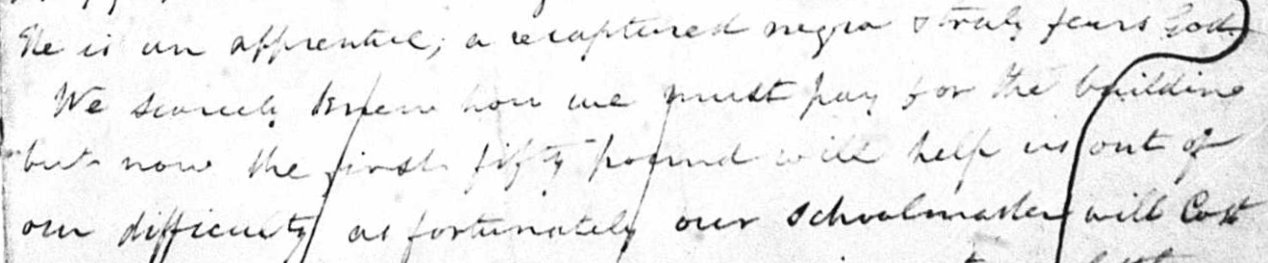 He is an apprentice; a recaptured negro & truly fears God.
We scarcely knew how we must pay for the building
but now the first fifty pound will help us out of
our difficulty as fortunately our schoolmaster will Cost